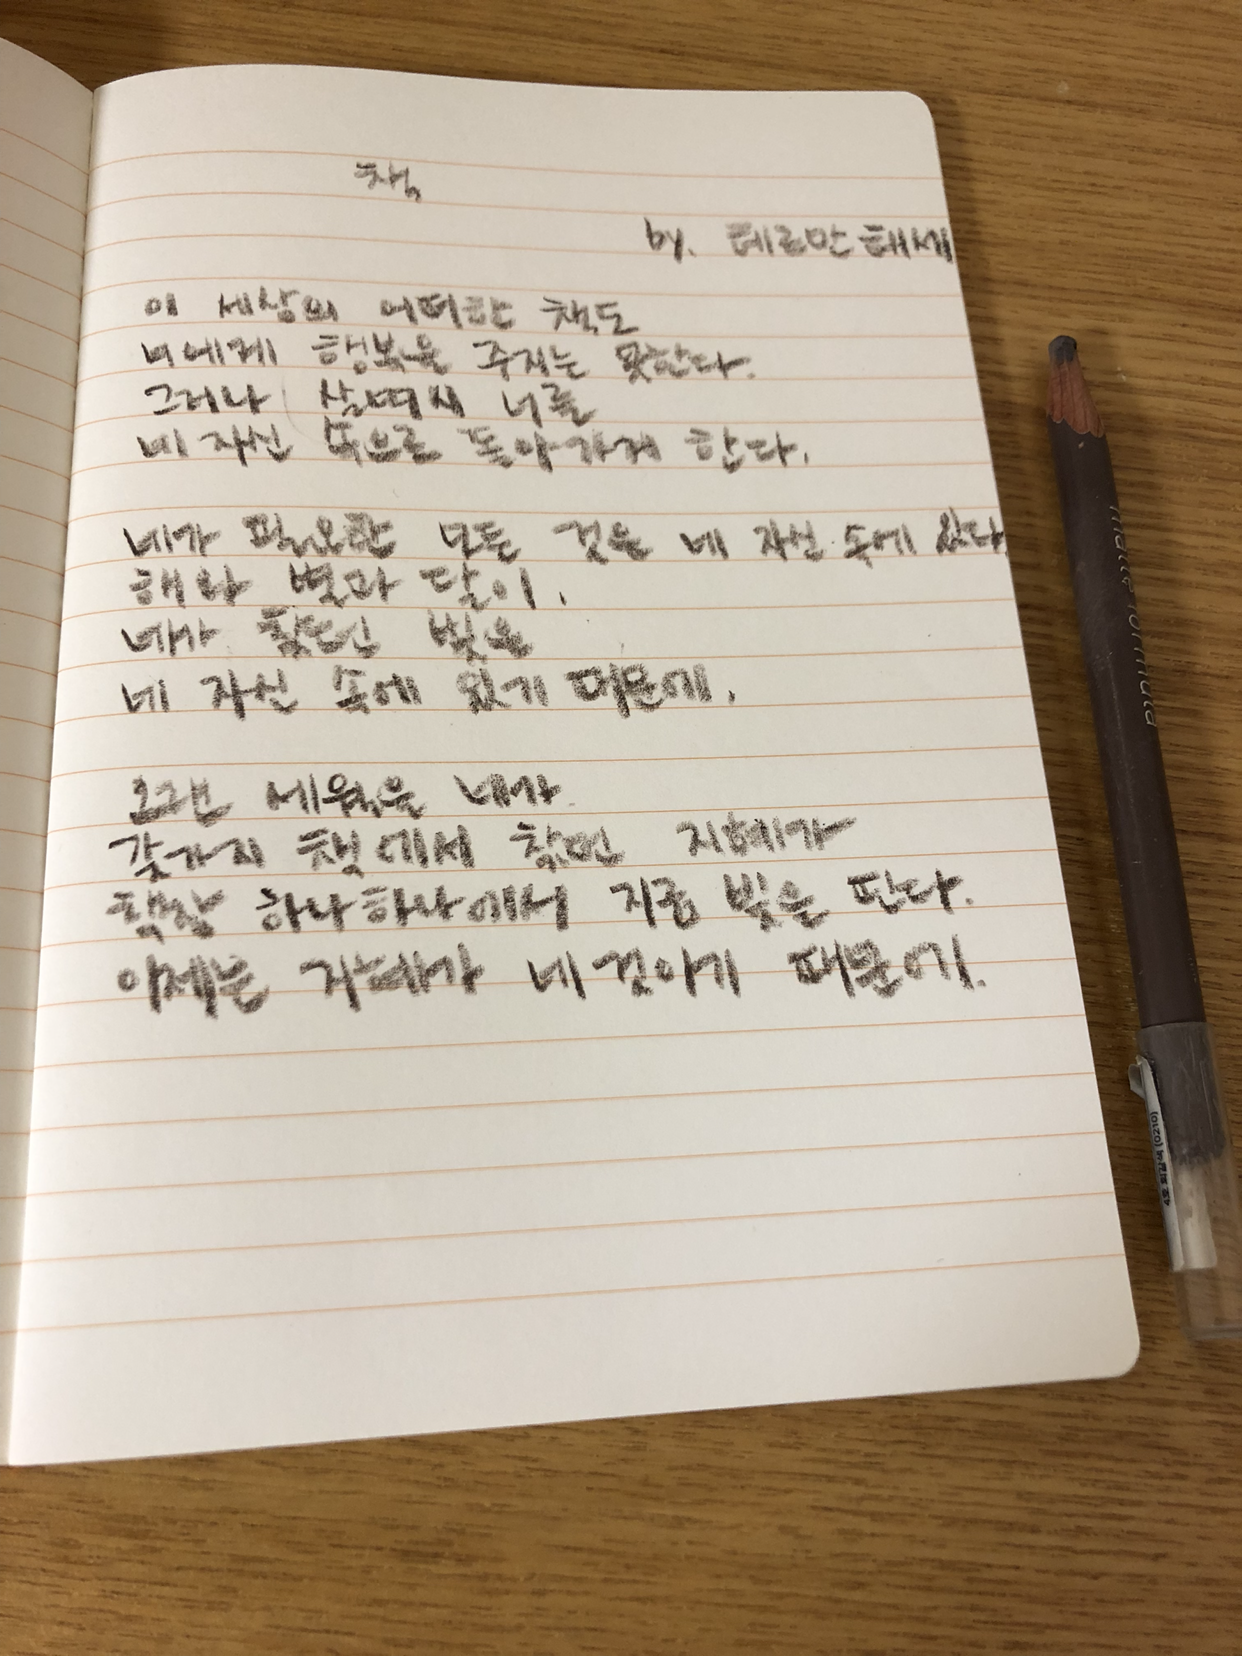 책
by. 헤르만 헤세
이 세상의 어떠한 책도
너에게 행복을 주지는 못한다.
그러나 살며시 너를
네 자신 속으로 돌아가게 한다.
네가 필요한 모든 것은 네 자신 속에 있다
해와 별과 달이.
네가 찾던 빛은
네 자신 속에 있기 때문에.
오랜 세월을 네가
갖가지 책에서 찾던 지혜가
책장 하나하나에서 지금 빛을 띤다.
이제는 지혜가 네 것이기 때문에.
maine formula
(0210)